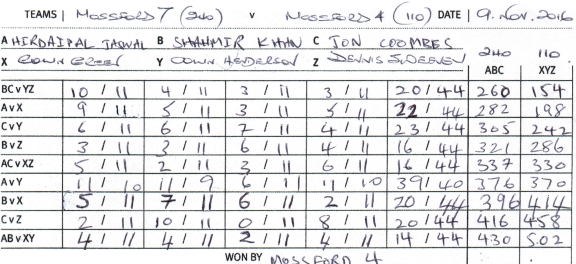 TEAMS MOSSFORD 7 (240) v MOSSFORD 4 (110) DATE 9. NOV. 2016
A HIRDAIPAL JASWAL B SHAHMIR KHAN C JON COOMBES 240 110
X COLIN GREEN Y COLIN HENDERSON Z DENNIS ABC XYZ
BC v YZ 10 / 11 4 / 11 3 / 11 3 / 11 20 / 44 260 154
A v X 9 / 11 5 / 11 3 / 11 5 / 11 22 / 44 282 198
C v Y 6 / 11 6 / 11 7 / 11 4 / 11 23 / 44 305 242
B v Z 3 / 11 3 / 11 6 / 11 4 / 11 16 / 44 321 286
AC v XZ 5 / 11 2 / 11 3 / 11 6 / 11 16 / 44 337 330
A v Y 11 / 10 11 / 9 6 / 11 11 / 10 39 / 40 376 370
B v X 5 / 11 7 / 11 6 / 11 2 / 11 20 / 44 396 414
C v Z 2 / 11 10 / 11 0 / 11 8 / 11 20 / 44 416 458
AB v XY 4 / 11 4 / 11 2 / 11 4 / 11 14 / 44 430 502
WON BY MOSSFORD 4